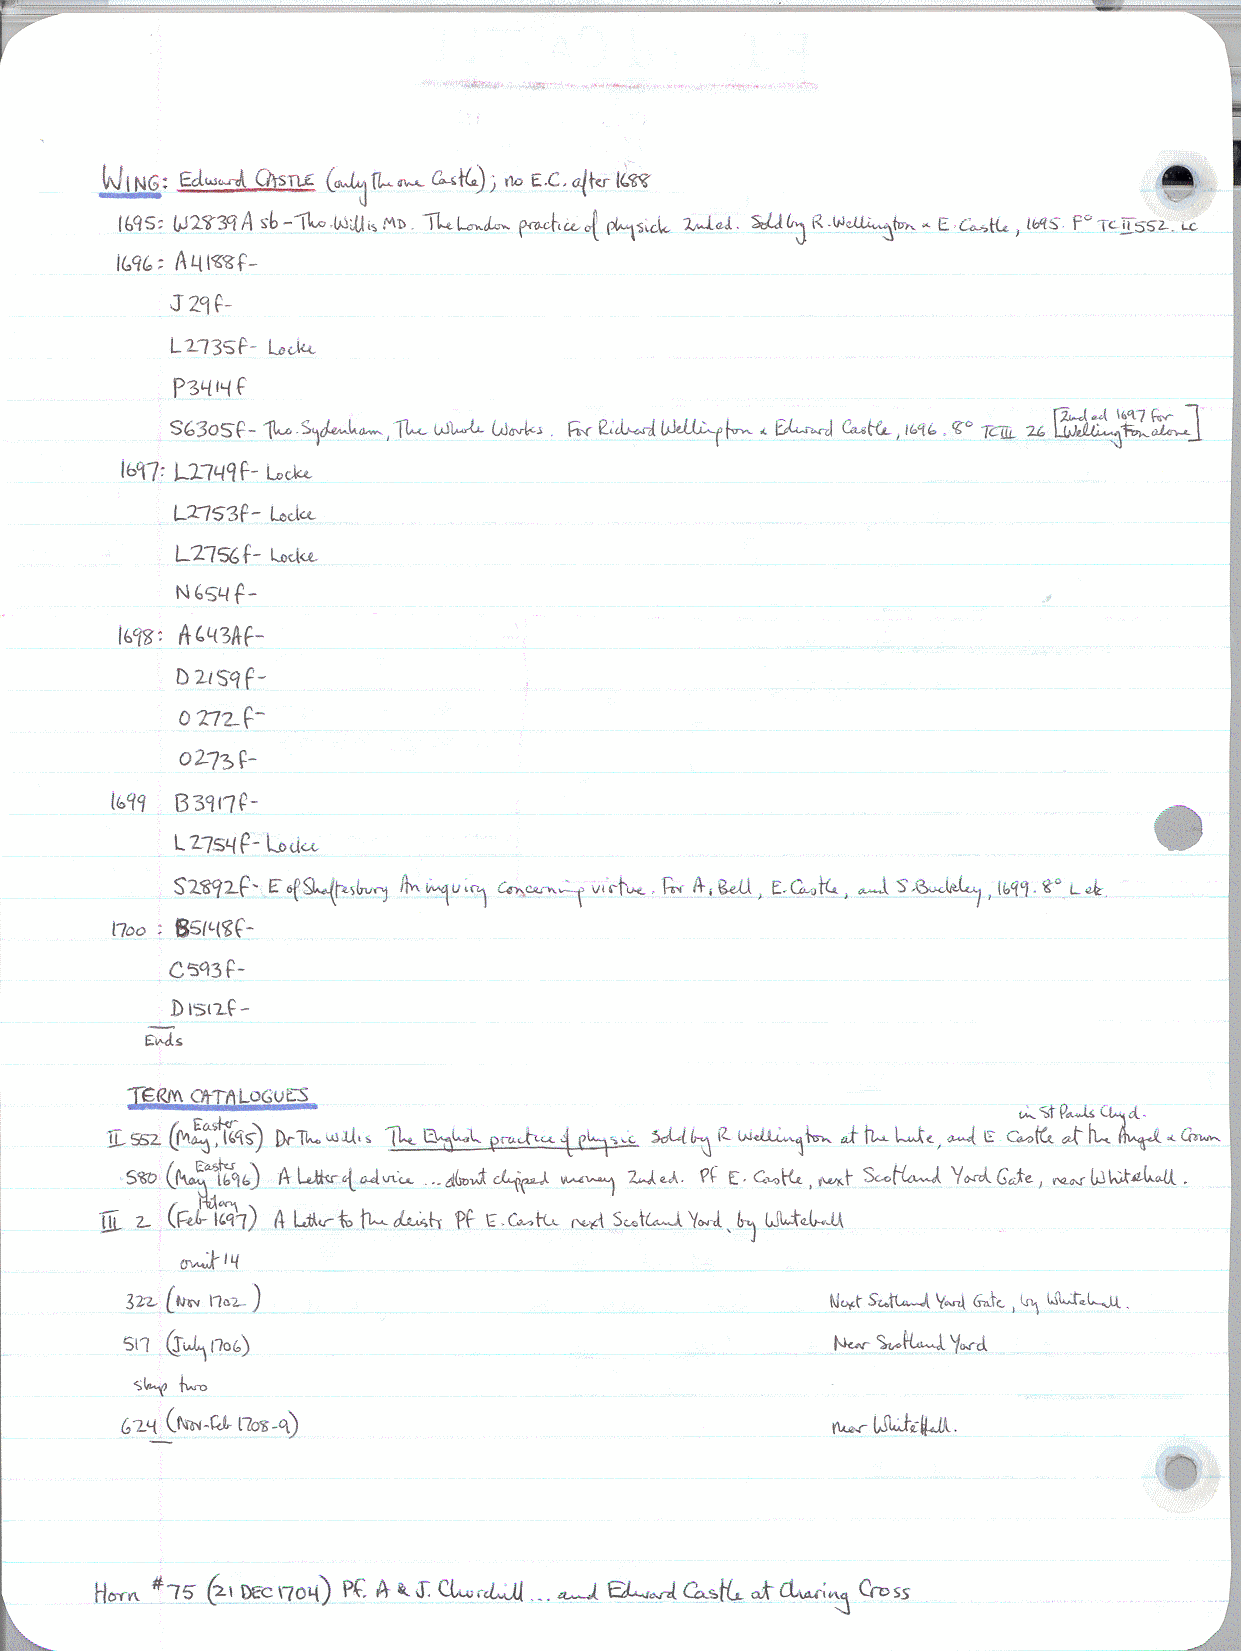 WING: Edward CASTLE (only the one Castle); no E.C. after 1688
1695: W2839A sb – Tho. Willis MD. The London practice of physick 2nd ed. Sold by R. Wellington & E. Castle, 1695. Fº TC II 552. LC
1696: A4188f-
J29f-
L2735f- Locke
P3414f
S6305f- Tho. Sydenham, The Whole Works. For Richard Wellington & Edward Castle, 1696. 8º TC III 26 [2nd ed 1697 for Wellington alone]
1697: L2749f- Locke
L2753f- Locke
L2756f- Locke
N654f-
1698: A643Af-
D2159f-
O272f-
O273f-
1699 B3917f-
L2754f- Locke
S2892f- E of Shaftesbury An inquiry concerning virtue. For A. Bell, E. Castle, and S. Buckley, 1699. 8º L etc.
1700: B5148f-
C593f-
D1512f-
Ends
TERM CATALOGUES
in St Pauls Chyd.
II 552 (Easter May, 1695) Dr Tho Willis The English practice of physic Sold by R Wellington at the Lute, and E Castle at the Angel & Crown
580 (Easter May 1696) A Letter of advice ... about clipped money 2nd ed. Pf E. Castle, next Scotland Yard Gate, near Whitehall.
III 2 (Hilary Feb 1697) A Letter to the deists Pf E. Castle next Scotland Yard, by Whitehall
omit 14
322 (Nov 1702) Next Scotland Yard Gate, by Whitehall.
517 (July 1706) Near Scotland Yard
skip two
624 (Nov-Feb 1708-9) near WhiteHall.
Horn #75 (21 DEC 1704) Pf. A & J. Churchill... and Edward Castle at Charing Cross